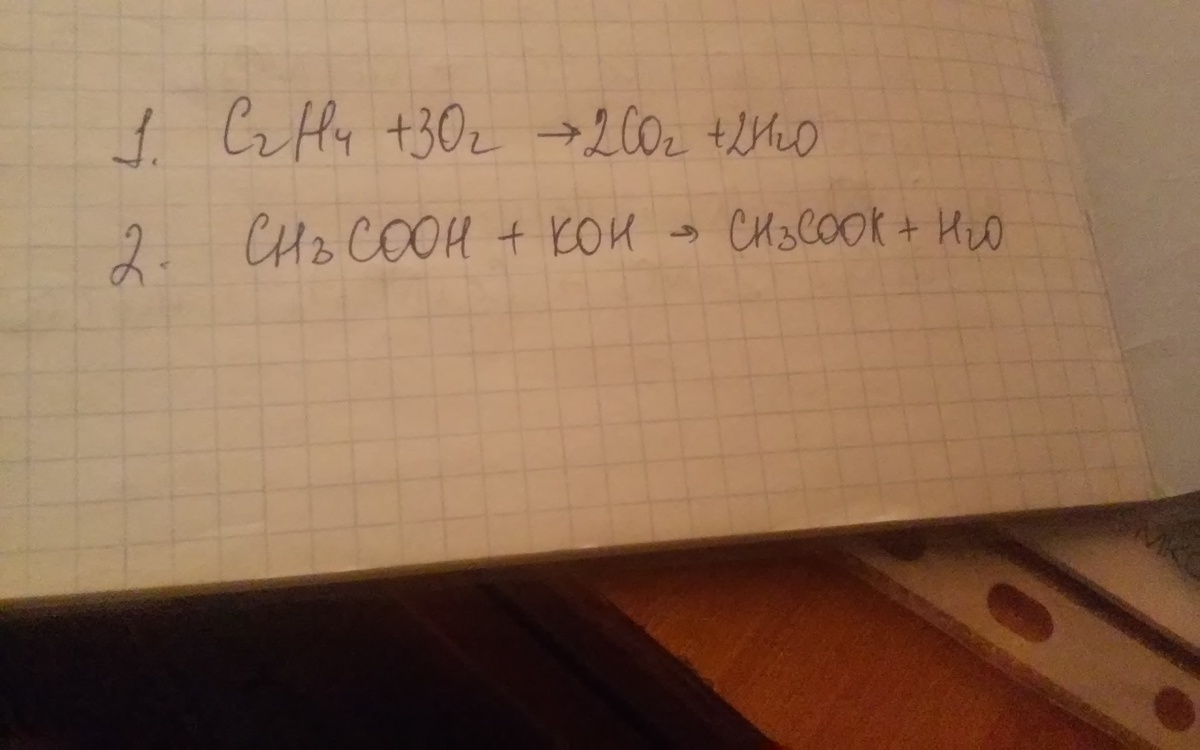 1. C₂H₄ +3O₂ →2CO₂ +2H₂O
2. CH₃COOH + KOH → CH₃COOK + H₂O